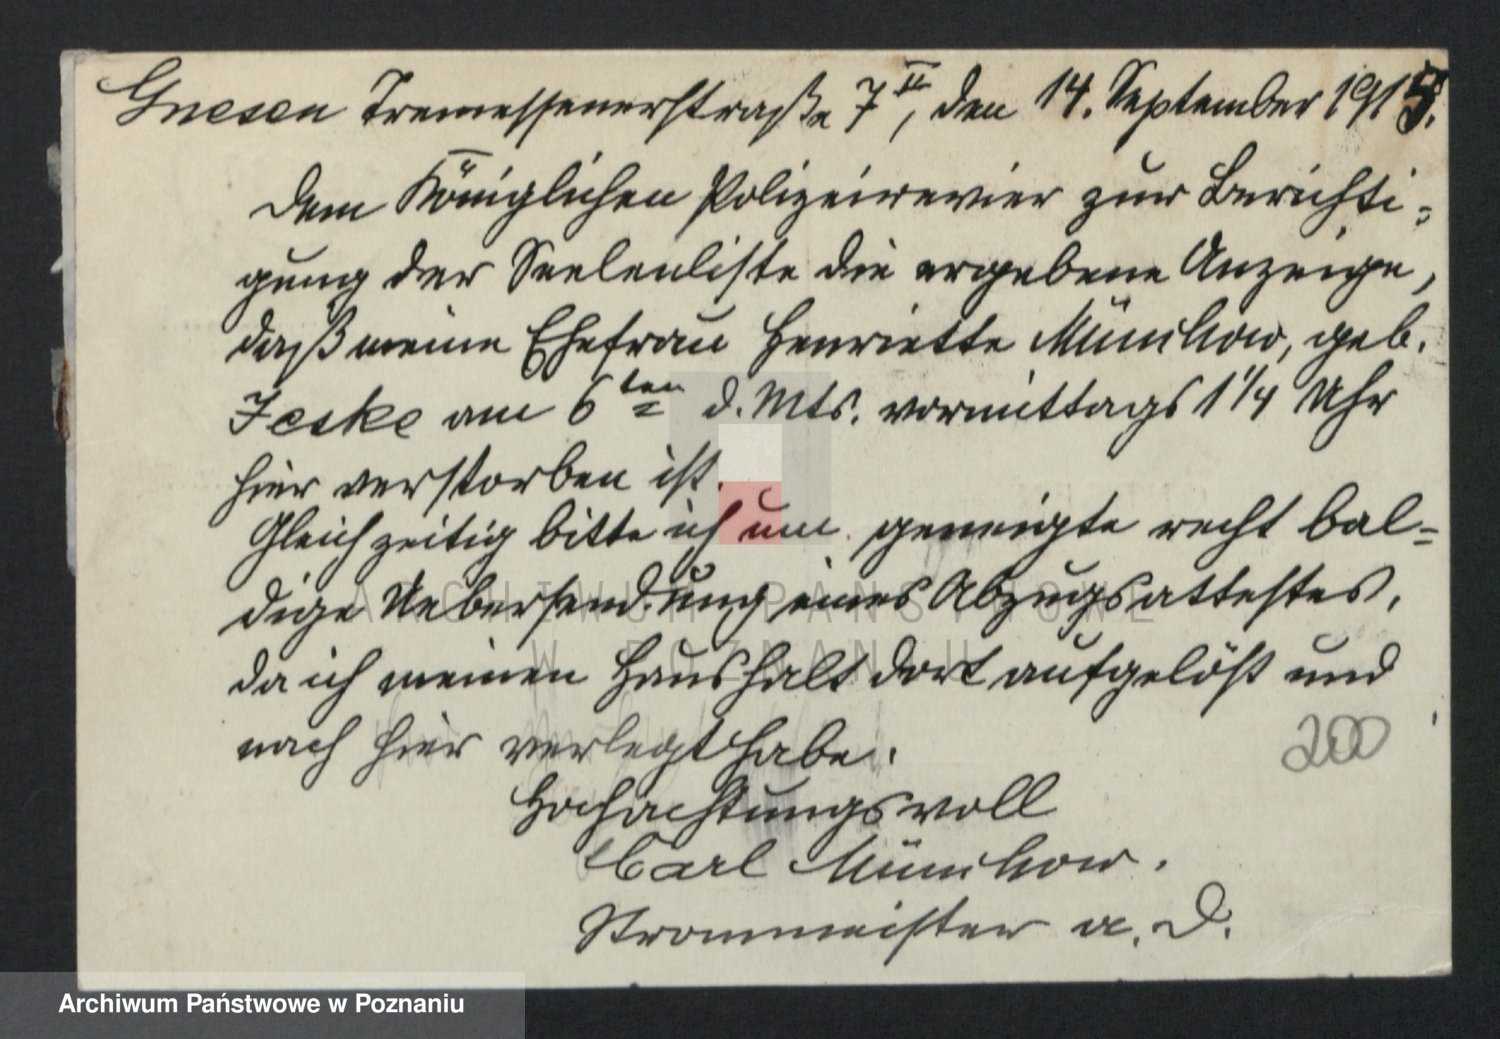 Gnesen Tremessenerstraße 7 II, den 14. September 1915.
Dem Königlichen Polizeirevier zur Berichti-
gung der Seelenliste die ergebene Anzeige,
daß meine Ehefrau Henriette Münchow, geb.
Jeske am 6ten d. Mts. vormittags 1 1/4 Uhr
hier verstorben ist.
Gleichzeitig bitte ich um geneigte recht bal-
dige Uebersendung eines Abzugsattestes,
da ich meinen Haushalt dort aufgelöst und
nach hier verlegt habe.
200
Hochachtungsvoll
Carl Münchow.
Strommeister a. D.
ARCHIWUM PAŃSTWOWE
W POZNANIU
Archiwum Państwowe w Poznaniu